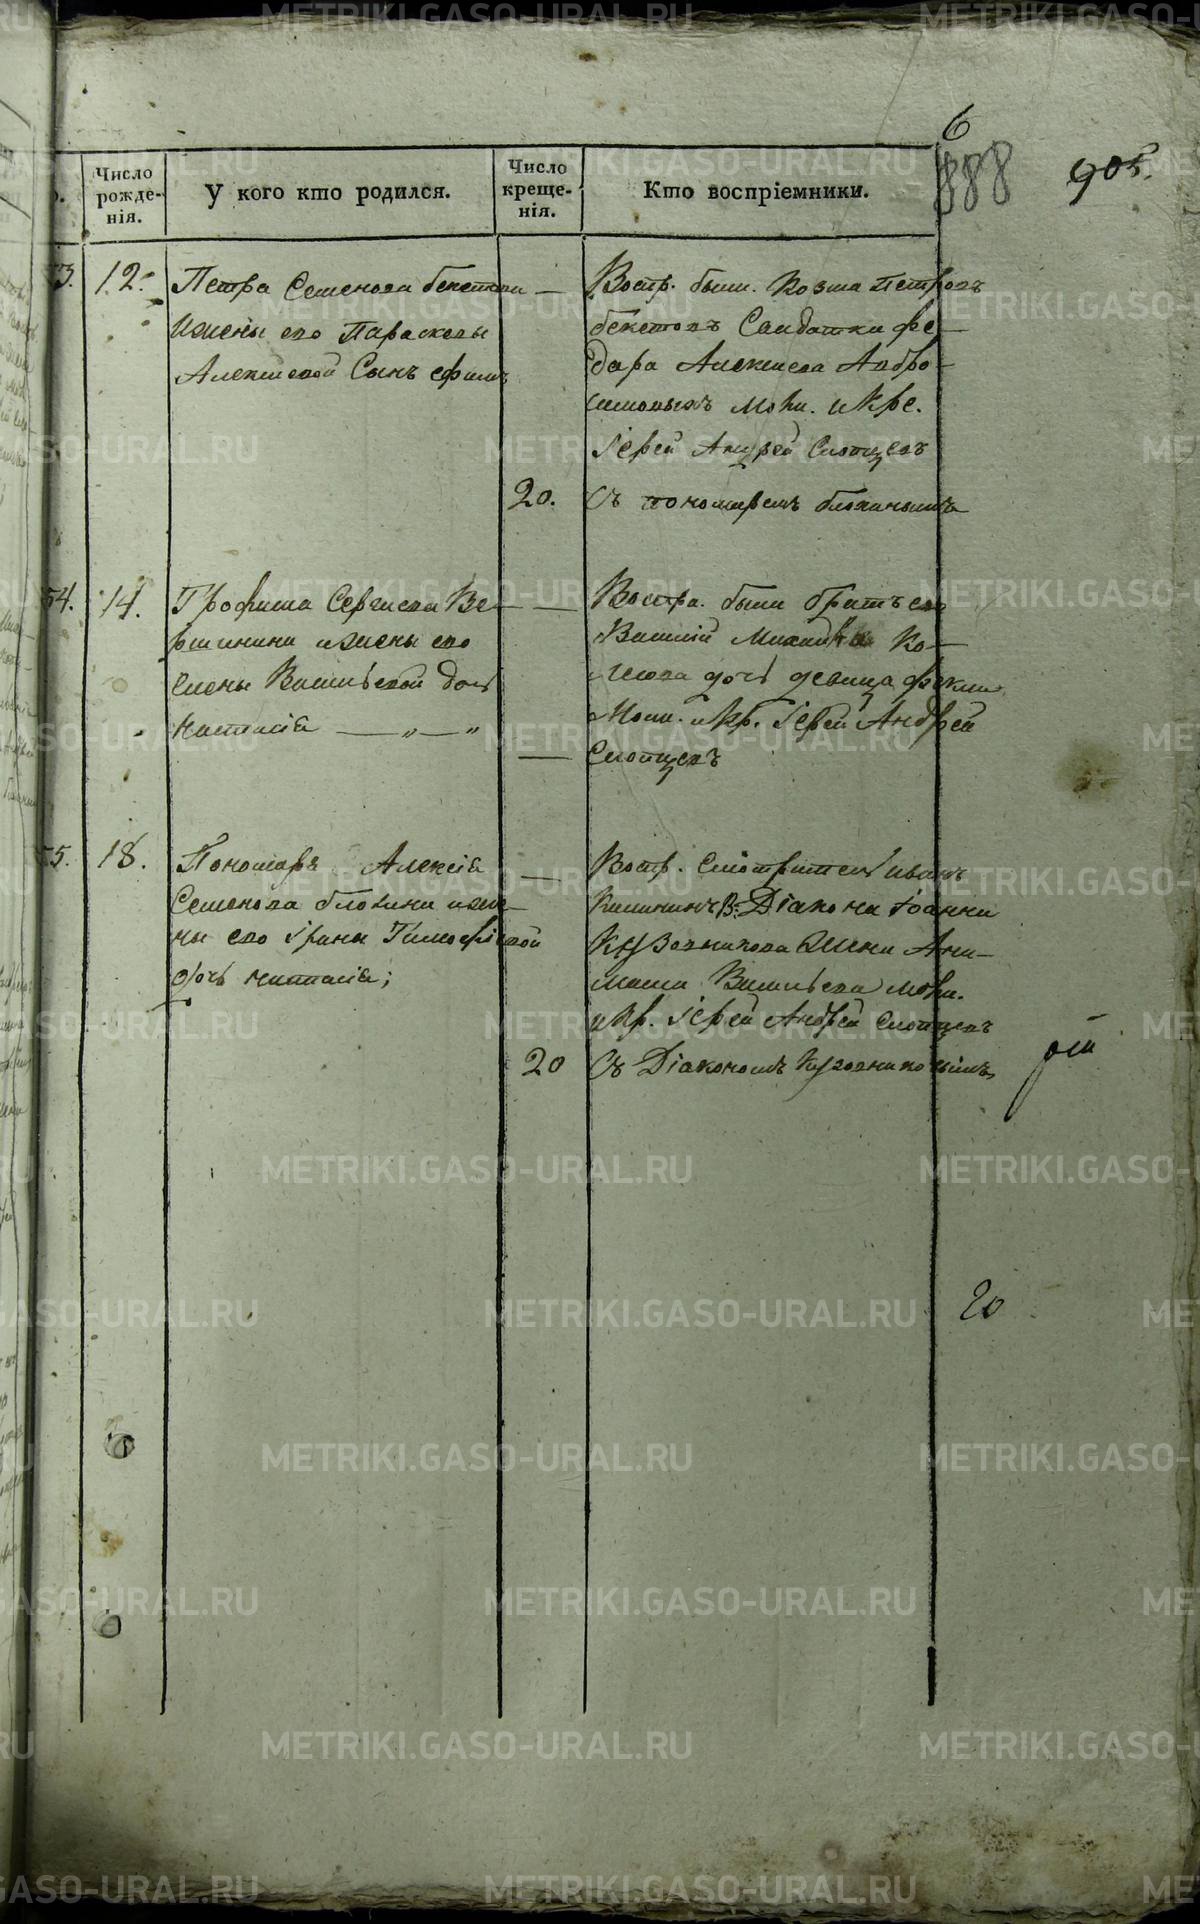 6
888
905.
Число рожде-нія.
У кого кто родился.
Число креще-нія.
Кто воспріемники.
53. 12.
Петра Семенова бекетова
Ижены его Параскевы
Алексіевой Сынъ ефимъ
Воспр. были. Козма Петровъ
бекетовъ Салдатки фе-
дара Алексиева Амбро-
симовыхъ мо
іерей Андрей Слопцовъ
20. Съ пономаремъ блохинымъ
54. 14.
Трофима Сергиева Ве-
ршинина ижены его
елены Васильевой дочь
Настасія — „ — „
Воспр. были братъ его
Василій
дочь девица фекла
Мол. икр. іерей Андрей
Слопцовъ
55. 18.
Пономаръ Алексія
Семенова блохина иже-
ны его ірины Тимофіевой
дочь настасія;
Воспр. Смотритель иванъ
Калининъ Діакона іоанна
Кузовникова жена Ана-
Васильева
икр. іерей Андрей Слопцовъ
20 Съ Діакономъ Кузовниковымъ
рій
20
METRIKI.GASO-URAL.RU